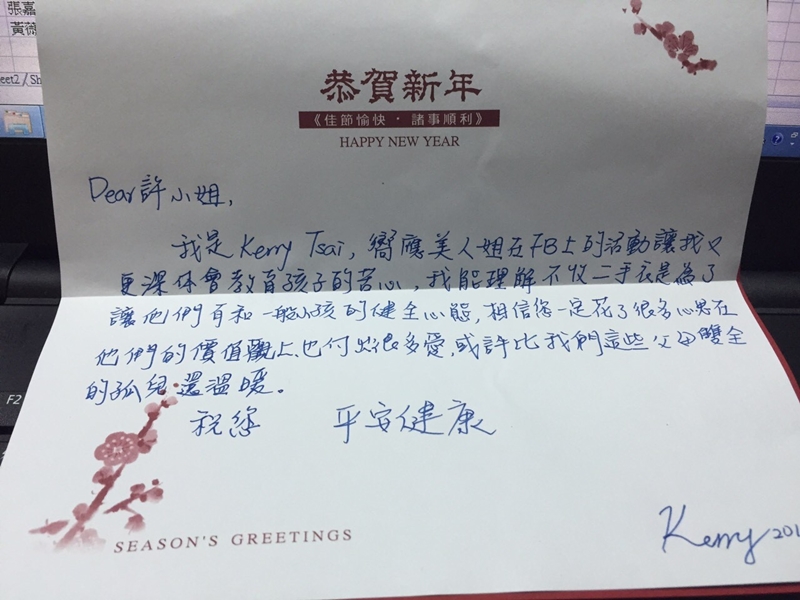 張嘉
黃薇
eet2 / Sh
恭賀新年
《佳節愉快・諸事順利》
HAPPY NEW YEAR
Dear 許小姐,
我是Kerry Tsai, 嚮應美人姐在FB上的活動讓我又
更深体會教育孩子的苦心, 我能理解不收二手衣是為了
讓他們有和一般小孩的健全心態, 相信您一定花了很多心思在
他們的價值觀上、也付出很多愛, 或許比我們這些父母雙全
的孤兒還溫暖。
祝您 平安健康
SEASON'S GREETINGS
Kerry 201
F2